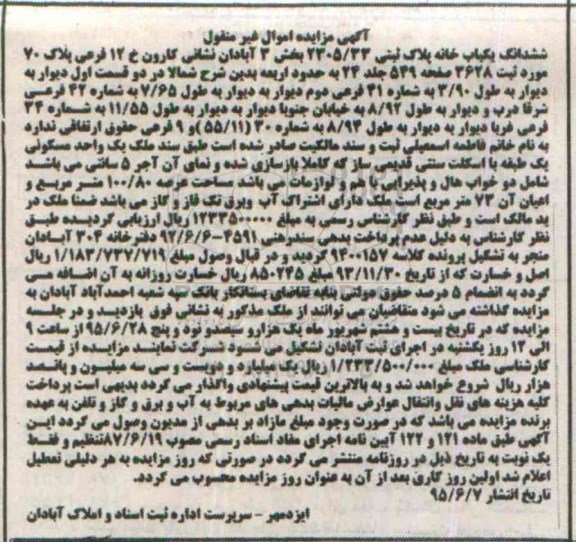 آگهی مزایده اموال غیر منقول
ششدانگ یکباب خانه پلاک ثبتی ۲۳۰۵/۳۳ بخش ۳ آبادان نشانی کارون خ ۱۲ فرعی پلاک ۷۰
مورد ثبت ۳۶۲۸ صفحه ۵۴۹ جلد ۲۴ به حدود اربعه بدین شرح شمالا در دو قسمت اول دیوار به
دیوار به طول ۳/۹۰ به شماره ۴۱ فرعی دوم دیوار به دیوار به طول ۷/۶۵ به شماره ۴۲ فرعی
شرقا درب و دیوار به طول ۸/۹۲ به خیابان جنوبا دیوار به دیوار به طول ۱۱/۵۵ به شماره ۳۴
فرعی غربا دیوار به دیوار به طول ۸/۹۴ به شماره ۳۰ (۵۵/۱۱) و ۹ فرعی حقوق ارتفاقی ندارد
به نام خانم فاطمه اسمعیلی ثبت و سند مالکیت صادر شده است طبق سند ملک یک واحد مسکونی
یک طبقه با اسکلت سنتی قدیمی ساز که کاملا بازسازی شده و نمای آن آجر ۵ سانتی می باشد
شامل دو خواب هال و پذیرایی با هم و لوازمات می باشد مساحت عرصه ۱۰۰/۸۰ متر مربع و
اعیان آن ۷۳ متر مربع است ملک دارای اشتراک آب وبرق تک فاز و گاز می باشد ضمنا ملک در
ید مالک است و طبق نظر کارشناس رسمی به مبلغ ۱۲۳۳۵۰۰۰۰۰ ریال ارزیابی گردیده طبق
نظر کارشناس به دلیل عدم پرداخت بدهی سندرهنی ۴۵۹۱-۹۲/۶/۶ دفترخانه ۳۰۴ آبادان
منجر به تشکیل پرونده کلاسه ۹۴۰۰۱۵۷ گردید و در قبال وصول مبلغ ۱/۱۸۳/۷۳۷/۷۱۹ ریال
اصل و خسارت که از تاریخ ۹۳/۱۱/۳۰ مبلغ ۸۵۰۲۴۵ ریال خسارت روزانه به آن اضافه می
گردد به انضمام ۵ درصد حقوق دولتی بنابه تقاضای بستانکار بانک سپه شعبه احمدآباد آبادان به
مزایده گذاشته می شود متقاضیان می توانند از ملک مذکور به نشانی فوق بازدید و در جلسه
مزایده که در تاریخ بیست و هشتم شهریور ماه یک هزارو سیصدونود و پنج ۹۵/۶/۲۸ از ساعت ۹
الی ۱۲ روز یکشنبه در اجرای ثبت آبادان تشکیل می شود شرکت نمایند مزایده از قیمت
کارشناسی ملک مبلغ ۱/۲۳۳/۵۰۰/۰۰۰ ریال یک میلیارد و دویست و سی سه میلیون و پانصد
هزار ریال شروع خواهد شد و به بالاترین قیمت پیشنهادی واگذار می گردد بدیهی است پرداخت
کلیه هزینه های نقل وانتقال عوارض مالیات بدهی های مربوط به آب و برق و گاز و تلفن به عهده
برنده مزایده می باشد که در صورت وجود مبلغ مازاد بر بدهی از مدیون وصول می گردد این
آگهی طبق ماده ۱۲۱ و ۱۲۲ آیین نامه اجرای مفاد اسناد رسمی مصوب ۸۷/۶/۱۹تنظیم و فقط
یک نوبت به تاریخ ذیل در روزنامه منتشر می گردد در صورتی که روز مزایده به هر دلیلی تعطیل
اعلام شد اولین روز کاری بعد از آن به عنوان روز مزایده محسوب می گردد.
تاریخ انتشار ۹۵/۶/۷
ایزدمهر - سرپرست اداره ثبت اسناد و املاک آبادان